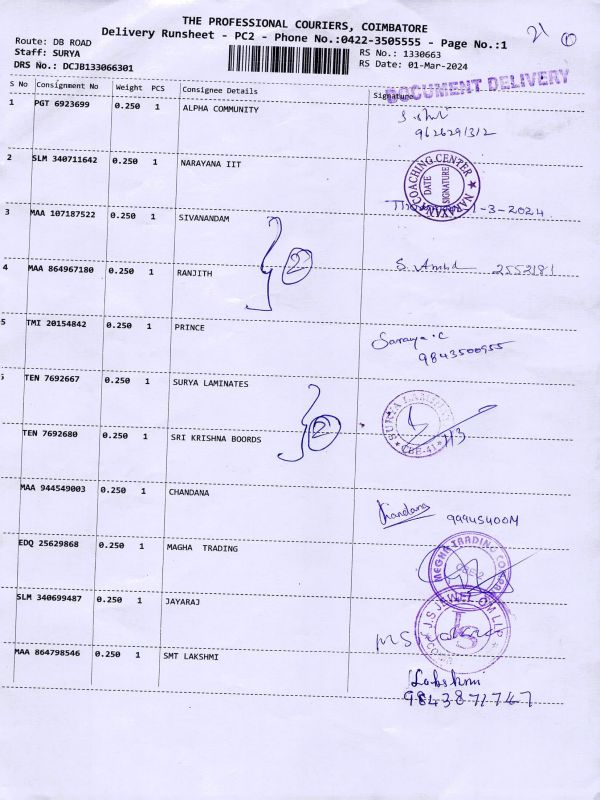 THE PROFESSIONAL COURIERS, COIMBATORE
Delivery Runsheet - PC2 - Phone No.:0422-3505555 - Page No.:1
21 1
Route: DB ROAD
RS No.: 1330663
Staff: SURYA
RS Date: 01-Mar-2024
DRS No.: DCJB133066301
DOCUMENT DELIVERY
S No Consignment No Weight PCS Consignee Details Signature
1 PGT 6923699 0.250 1 ALPHA COMMUNITY
9626291312
2 SLM 340711642 0.250 1 NARAYANA IIT
NARAYANA COACHING CENTER ★ DATE SIGNATURE
1-3-2024
3 MAA 107187522 0.250 1 SIVANANDAM
2
4 MAA 864967180 0.250 1 RANJITH
S. 2552181
5 TMI 20154842 0.250 1 PRINCE
Saraya.C
9843500955
TEN 7692667 0.250 1 SURYA LAMINATES
★ SURYA LAMINATES ★ CBE-41
1/3
TEN 7692680 0.250 1 SRI KRISHNA BOORDS
2
MAA 944549003 0.250 1 CHANDANA
Chandana
EDQ 25629868 0.250 1 MAGHA TRADING
MEGHA TRADING
SLM 340699487 0.250 1 JAYARAJ
J.S. LLP
JS
MAA 864798546 0.250 1 SMT LAKSHMI
Lakshmi
9843871747